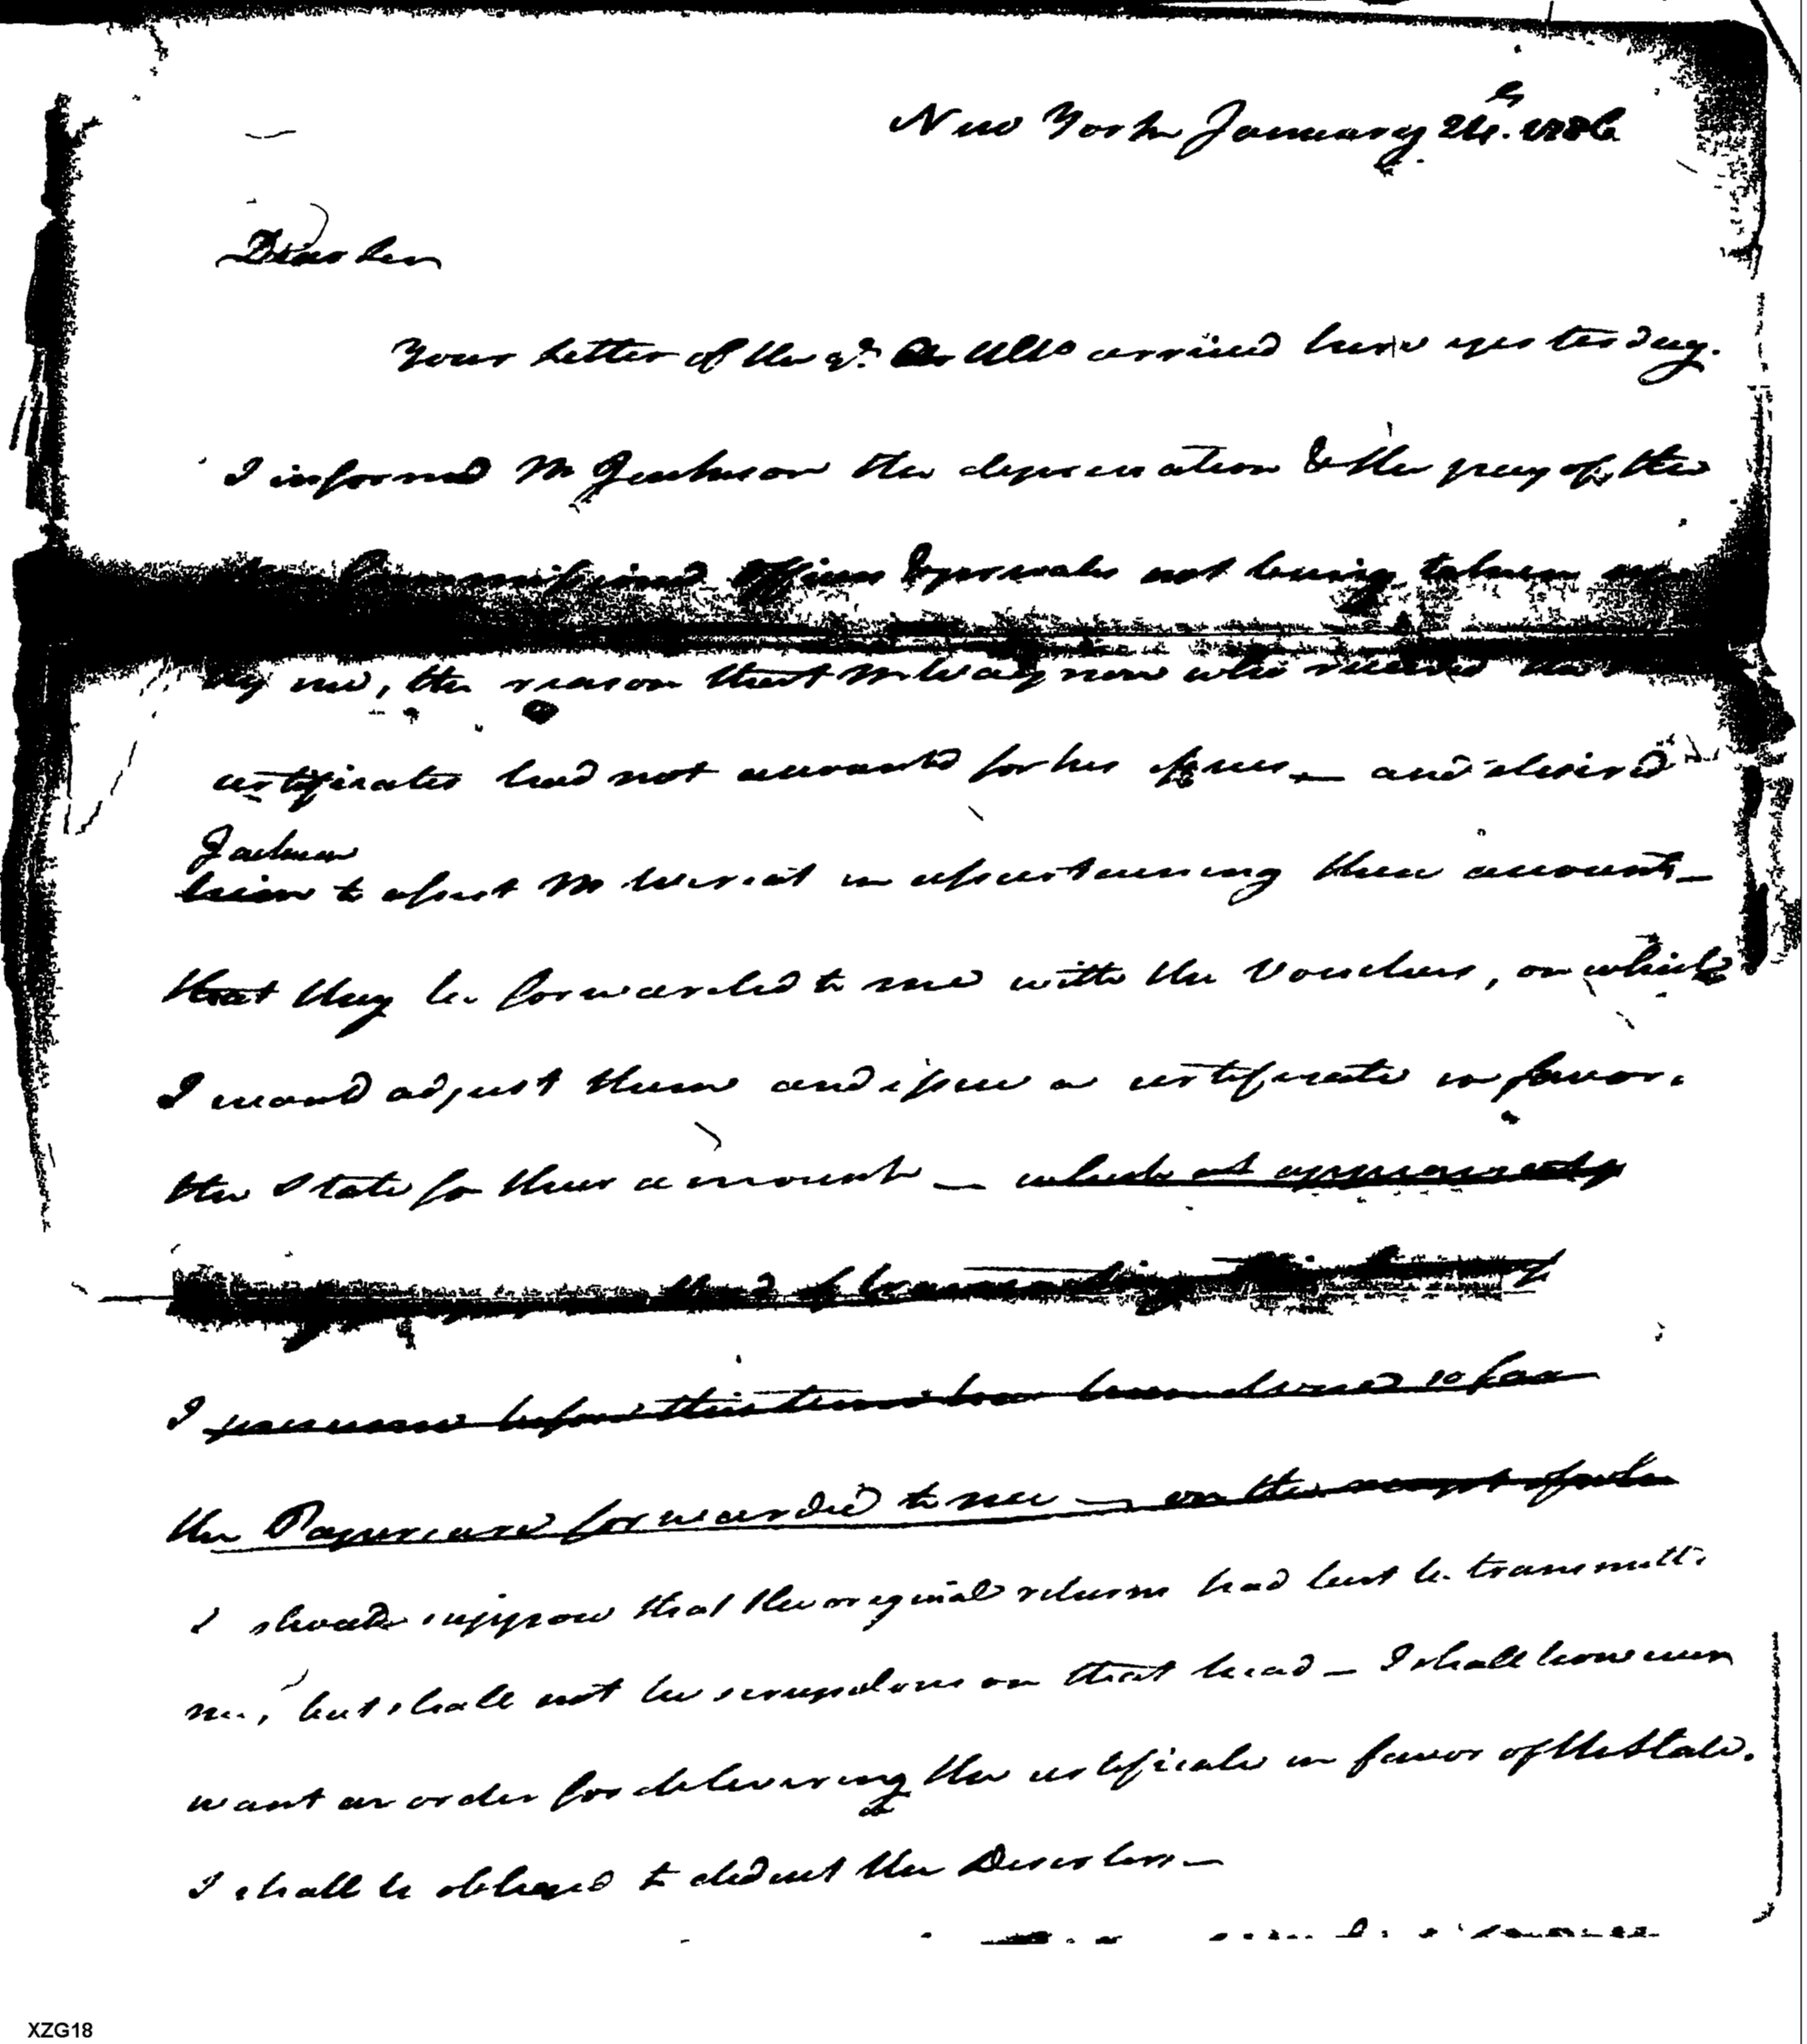 New York January 24th. 1786
Dear Sir
Your letter of the 2d. Ulto arrived here yesterday.
I informed Mr Jackson the depreciation & the pay of the
Non Commissioned Officers & privates not being taken up
by me, the reason that Mr Wray now who received the
certificates had not accounted for his Issues — and desired
Jackson
him to assist Mr Wereat in ascertaining these accounts —
that they be forwarded to me with the Vouchers, on which
I would adjust them and issue a certificate in favor.
the State for their amount — which
of transmitting
I presume before this time have been done so far
the Papers are forwarded to me — on the receipt of
I should suppose that the original returns had best be transmitt.
me, but shall not be scrupulous on that head — I shall however
want an order for delivering the certificate in favor of the State.
I shall be obliged to deduct the Deserters —
XZG18